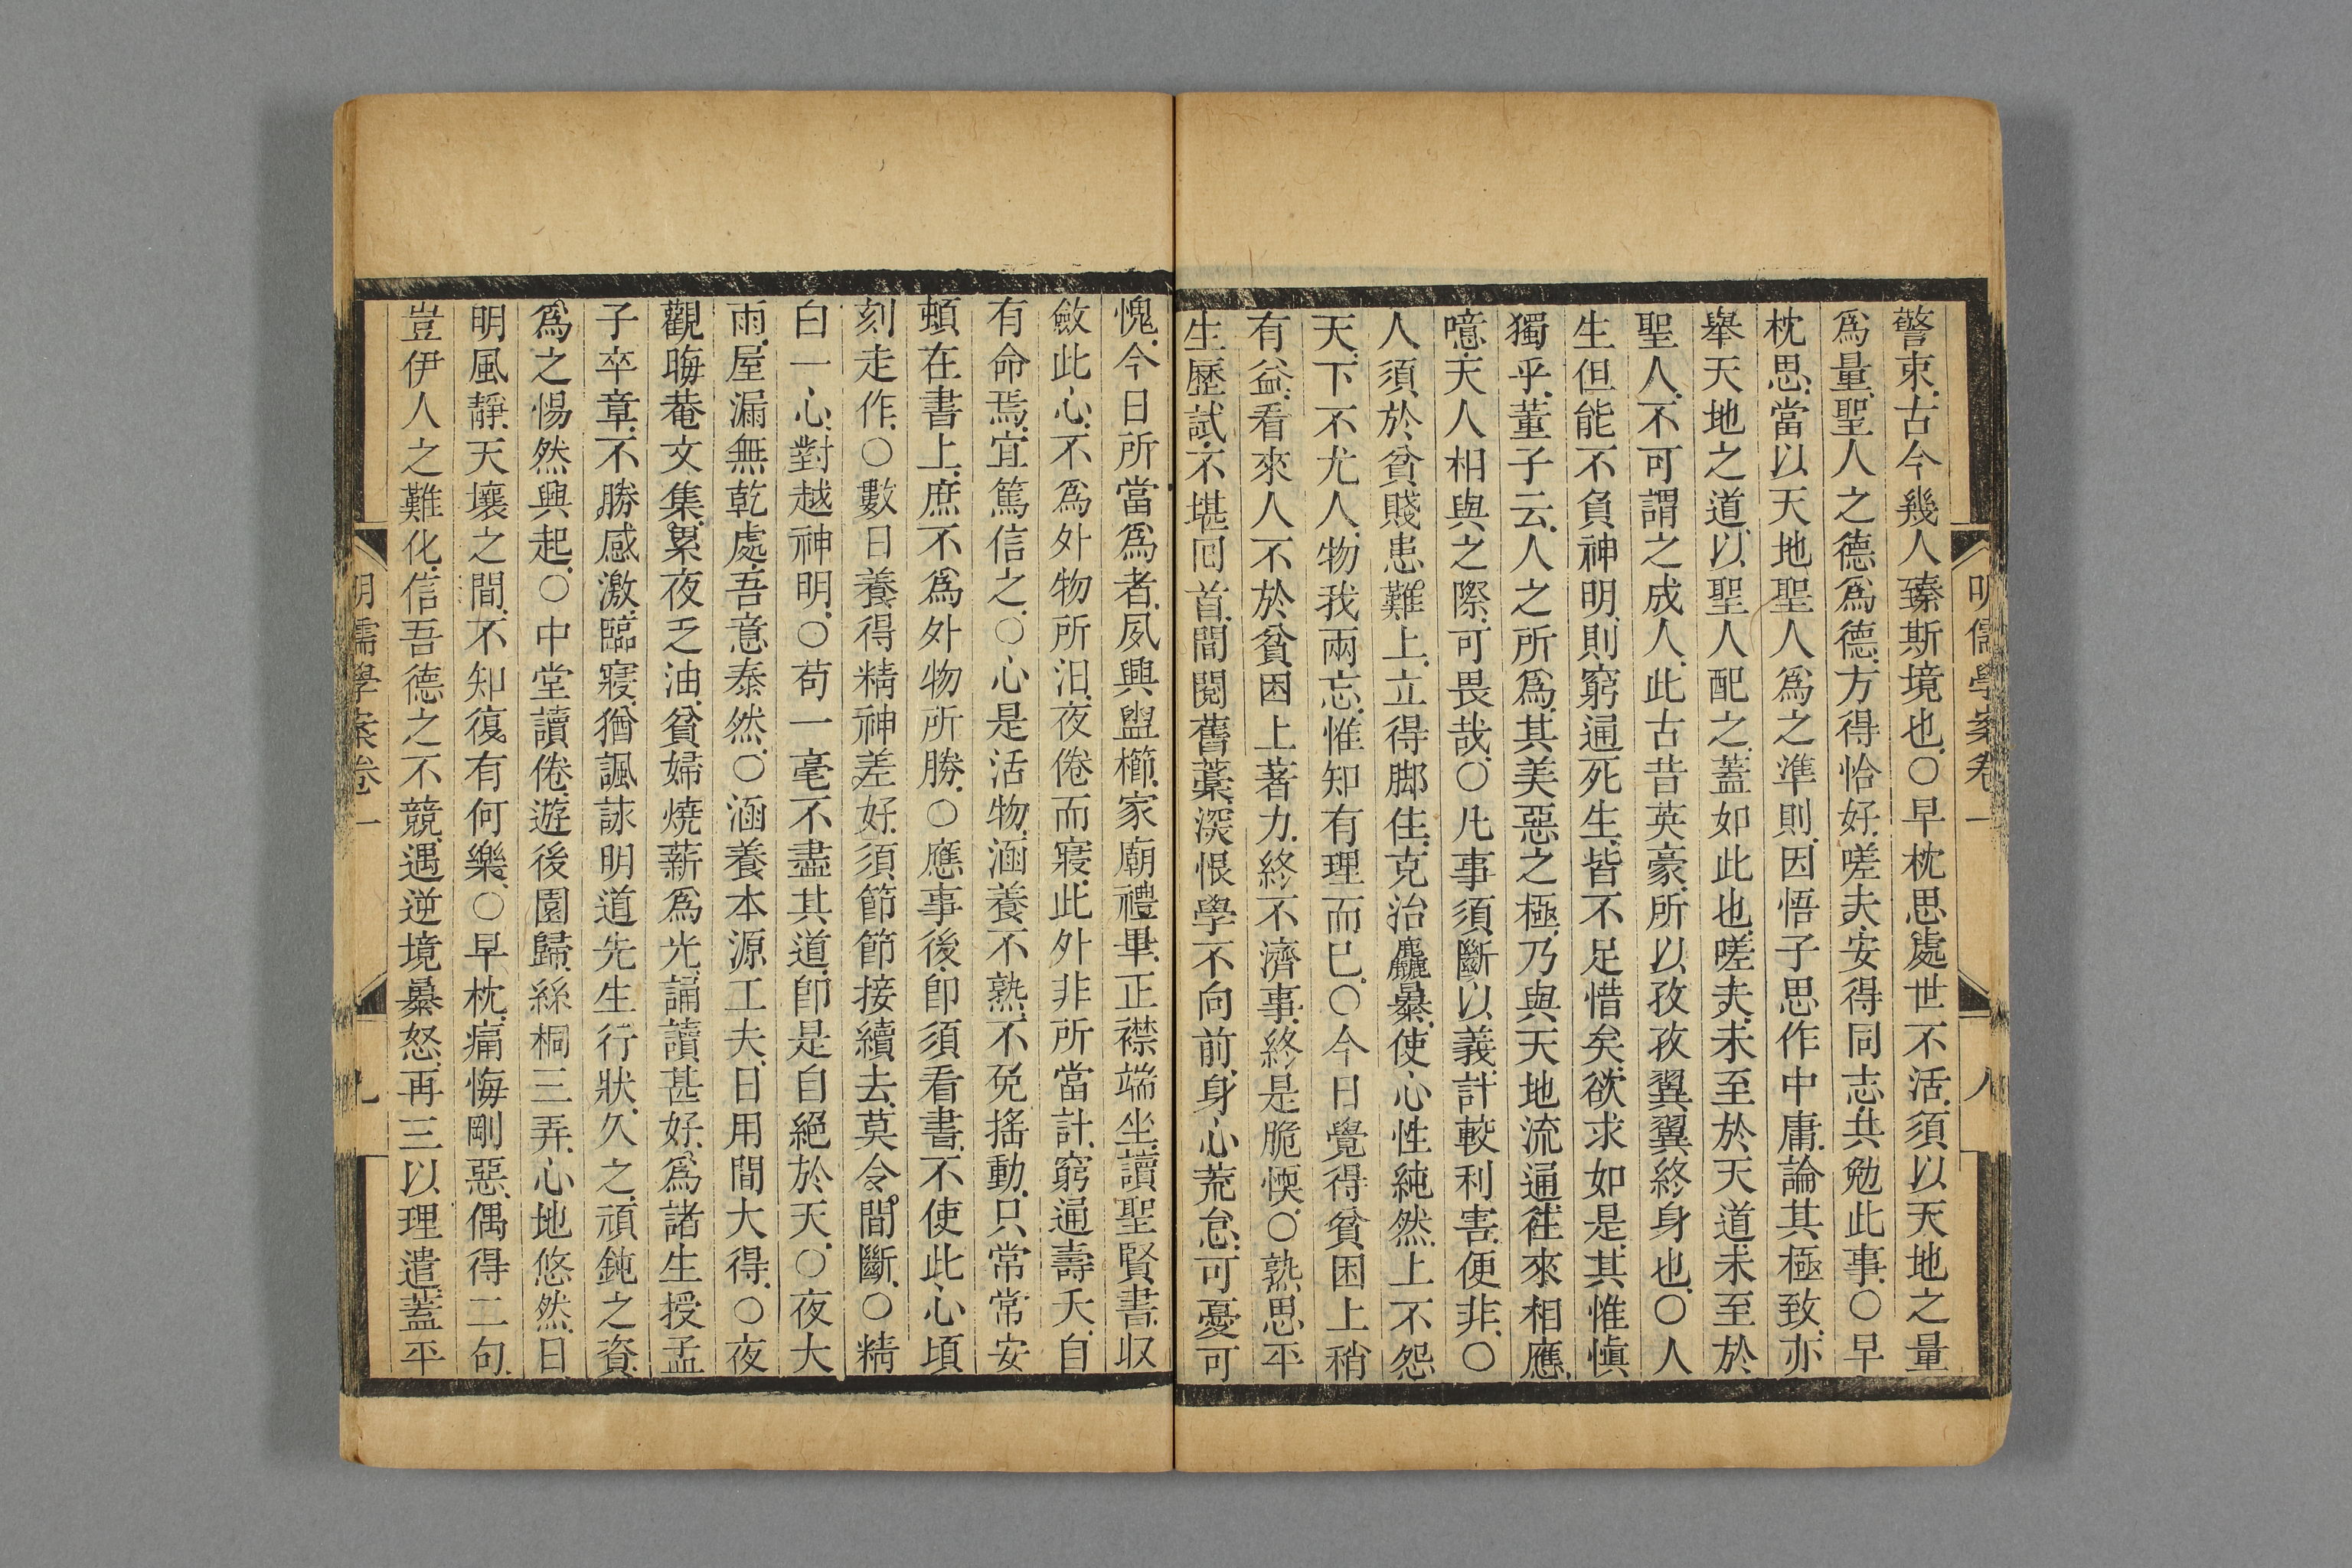 明儒學案卷一
八
警束.古今幾人臻斯境也.○早枕思.處世不活.須以天地之量
爲量.聖人之德爲德.方得恰好.嗟夫.安得同志.共勉此事.○早
枕思.當以天地聖人爲之準則.因悟子思作中庸.論其極致.亦
舉天地之道.以聖人配之.蓋如此也.嗟夫.未至於天道.未至於
聖人.不可謂之成人.此古昔英豪.所以孜孜翼翼終身也.○人
生但能不負神明.則窮通死生.皆不足惜矣.欲求如是.其惟愼
獨乎.董子云.人之所爲.其美惡之極.乃與天地流通.往來相應.
噫.天人相與之際.可畏哉.○凡事須斷以義.計較利害.便非.○
人須於貧賤患難上.立得脚住.克治麤暴.使心性純然.上不怨
天.下不尤人.物我兩忘.惟知有理而已.○今日覺得貧困上稍
有益.看來人不於貧困上著力.終不濟事.終是脆愞.○熟思平
生歷試.不堪回首.間閱舊藁.深恨學不向前.身心荒怠.可憂可
愧.今日所當爲者.夙興盥櫛.家廟禮畢.正襟端坐.讀聖賢書.収
斂此心.不爲外物所汨.夜倦而寢.此外非所當計.窮通壽夭.自
有命焉.宜篤信之.○心是活物.涵養不熟.不免搖動.只常常安
頓在書上.庶不爲外物所勝.○應事後.卽須看書.不使此心頃
刻走作.○數日養得精神差好.須節節接續去.莫令間斷.○精
白一心.對越神明.○苟一毫不盡其道.卽是自絕於天.○夜大
雨.屋漏無乾處.吾意泰然.○涵養本源工夫.日用間大得.○夜
觀晦菴文集.累夜乏油.貧婦燒薪爲光.誦讀甚好.爲諸生授孟
子卒章.不勝感激.臨寢.猶諷詠明道先生行狀.久之.頑鈍之資.
爲之惕然興起.○中堂讀倦.遊後園歸.絲桐三弄.心地悠然.日
明風靜.天壤之間.不知復有何樂.○早枕.痛悔剛惡.偶得二句.
豈伊人之難化.信吾德之不競.遇逆境暴怒.再三以理遣.蓋平
明儒學案卷一
九